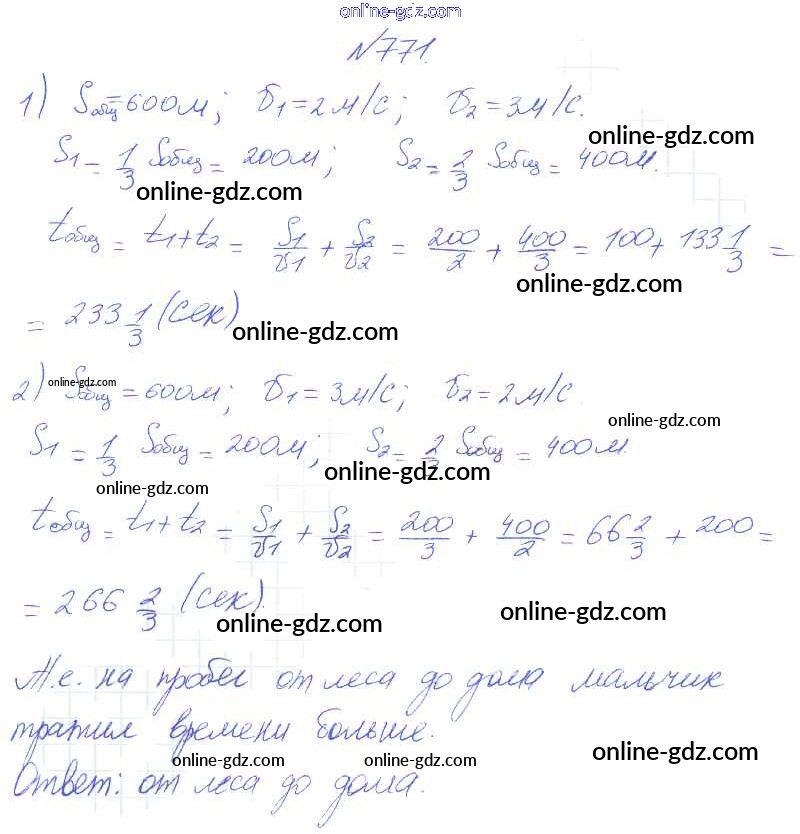 online-gdz.com
№771.
1) Sобщ=600м; υ1=2м/с; υ2=3м/с.
online-gdz.com
S1=1/3 Sобщ=200м; S2=2/3 Sобщ=400м.
online-gdz.com
tобщ= t1+t2= S1/υ1 + S2/υ2 = 200/2 + 400/3 = 100+ 133 1/3 =
online-gdz.com
= 233 1/3 (сек)
online-gdz.com
2) Sобщ=600м; υ1=3м/с; υ2=2м/с.
online-gdz.com
online-gdz.com
S1=1/3 Sобщ=200м; S2=2/3 Sобщ=400м.
online-gdz.com
online-gdz.com
tобщ= t1+t2= S1/υ1 + S2/υ2 = 200/3 + 400/2 = 66 2/3 + 200=
= 266 2/3 (сек).
online-gdz.com
online-gdz.com
Т.е. на пробег от леса до дома мальчик
тратил времени больше.
online-gdz.com
online-gdz.com
Ответ: от леса до дома.